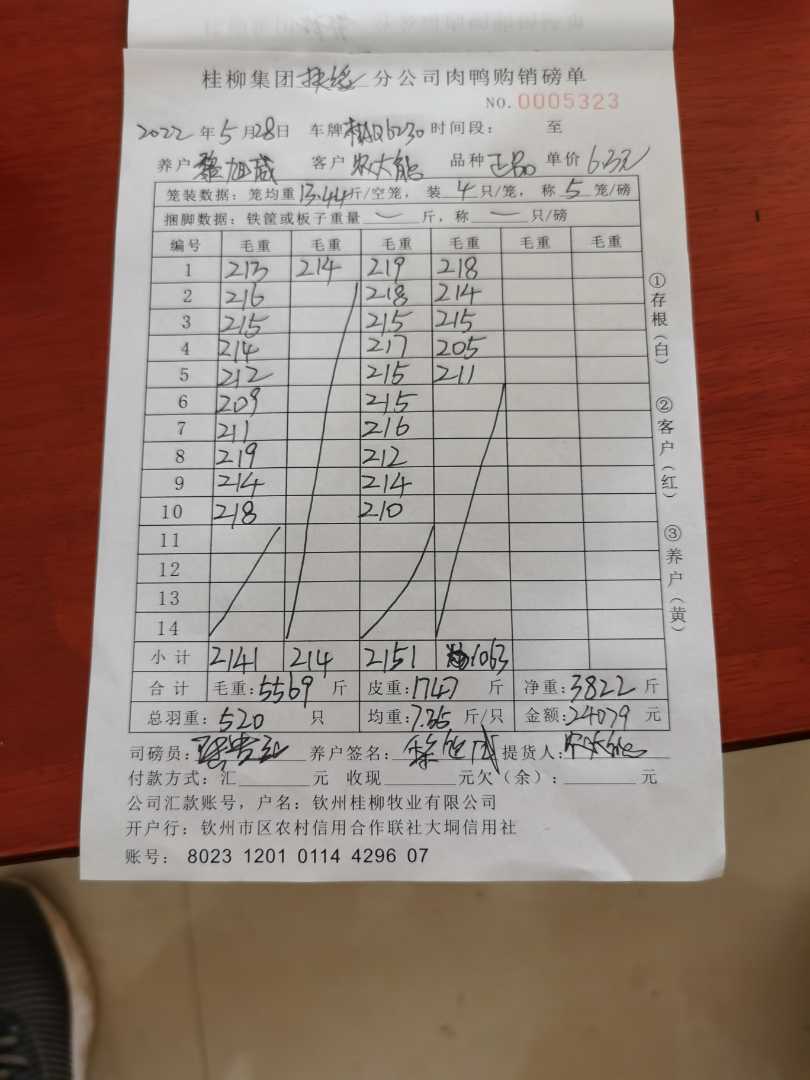 桂柳集团扶绥分公司肉鸭购销磅单
NO.0005323
2022年5月28日 车牌桂AQ6230时间段： 至
养户 客户农大能 品种正品 单价6.3元
笼装数据：笼均重13.44斤/空笼，装4只/笼，称5笼/磅
捆脚数据：铁筐或板子重量 斤，称 只/磅
编号 毛重 毛重 毛重 毛重 毛重 毛重
1 213 214 219 218
2 216 218 214
3 215 215 215
4 214 217 205
5 212 215 211
6 209 215
7 211 216
8 219 212
9 214 214
10 218 210
11
12
13
14
小计 2141 214 2151 1063
合计 毛重：5569斤 皮重：1747斤 净重：3822斤
总羽重：520只 均重：7.35斤/只 金额：24079元
司磅员： 养户签名： 提货人：农大能
付款方式：汇 元 收现 元欠（余）： 元
公司汇款账号，户名：钦州桂柳牧业有限公司
开户行：钦州市区农村信用合作联社大垌信用社
账号：8023 1201 0114 4296 07
①存根（白）
②客户（红）
③养户（黄）